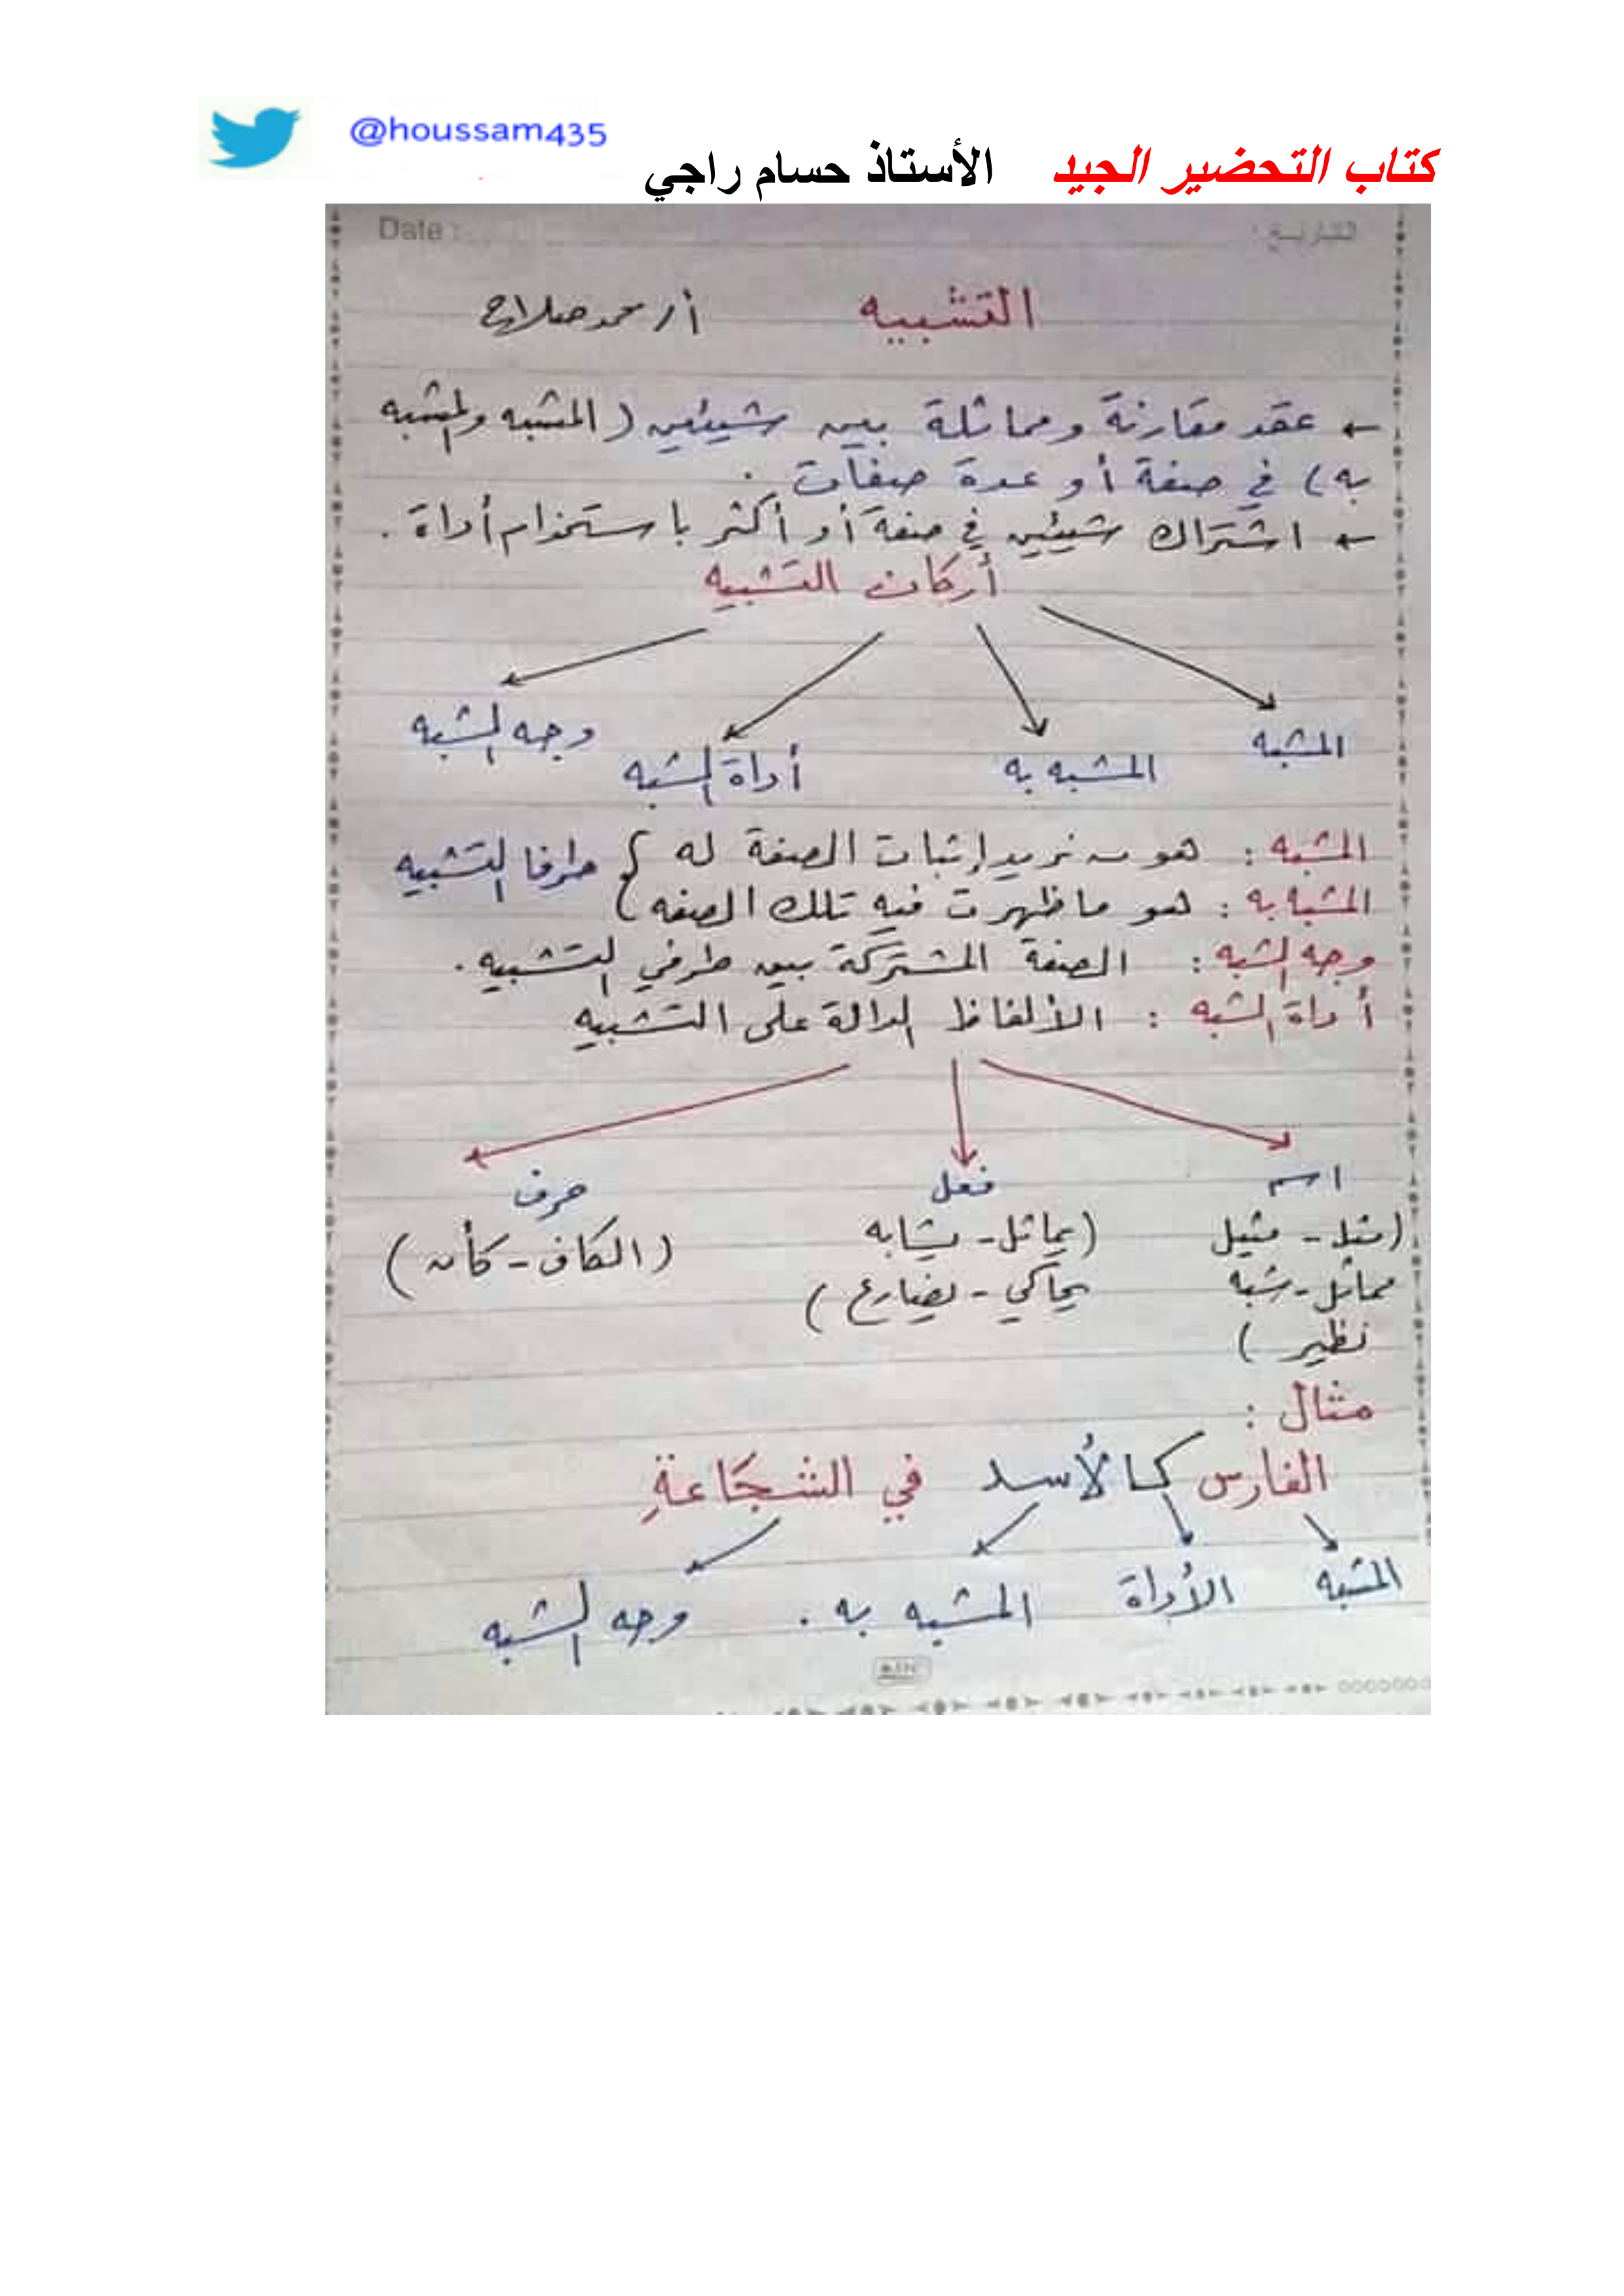 @houssam435
كتاب التحضير الجيد الأستاذ حسام راجي
Date : التاريخ :
التشبيه أ/ محمد صلاح
← عقد مقارنة ومماثلة بين شيئين (المشبه والمشبه
به) في صفة أو عدة صفات .
← اشتراك شيئين في صفة أو أكثر باستخدام أداة .
أركان التشبيه
المشبه المشبه به أداة الشبه وجه الشبه
المشبه : هو من نريد إثبات الصفة له } طرفا التشبيه
المشبه به : هو ما ظهرت فيه تلك الصفه
وجه الشبه : الصفة المشتركة بين طرفي التشبيه .
أداة الشبه : الألفاظ الدالة على التشبيه
اسم فعل حرف
(مثل - مثيل (يماثل - يشابه (الكاف - كأن)
مماثل - شبه يحاكي - يضارع)
نظير)
مثال :
الفارس كالأسد في الشجَاعةِ
المشبه الأداة المشبه به . وجه الشبه